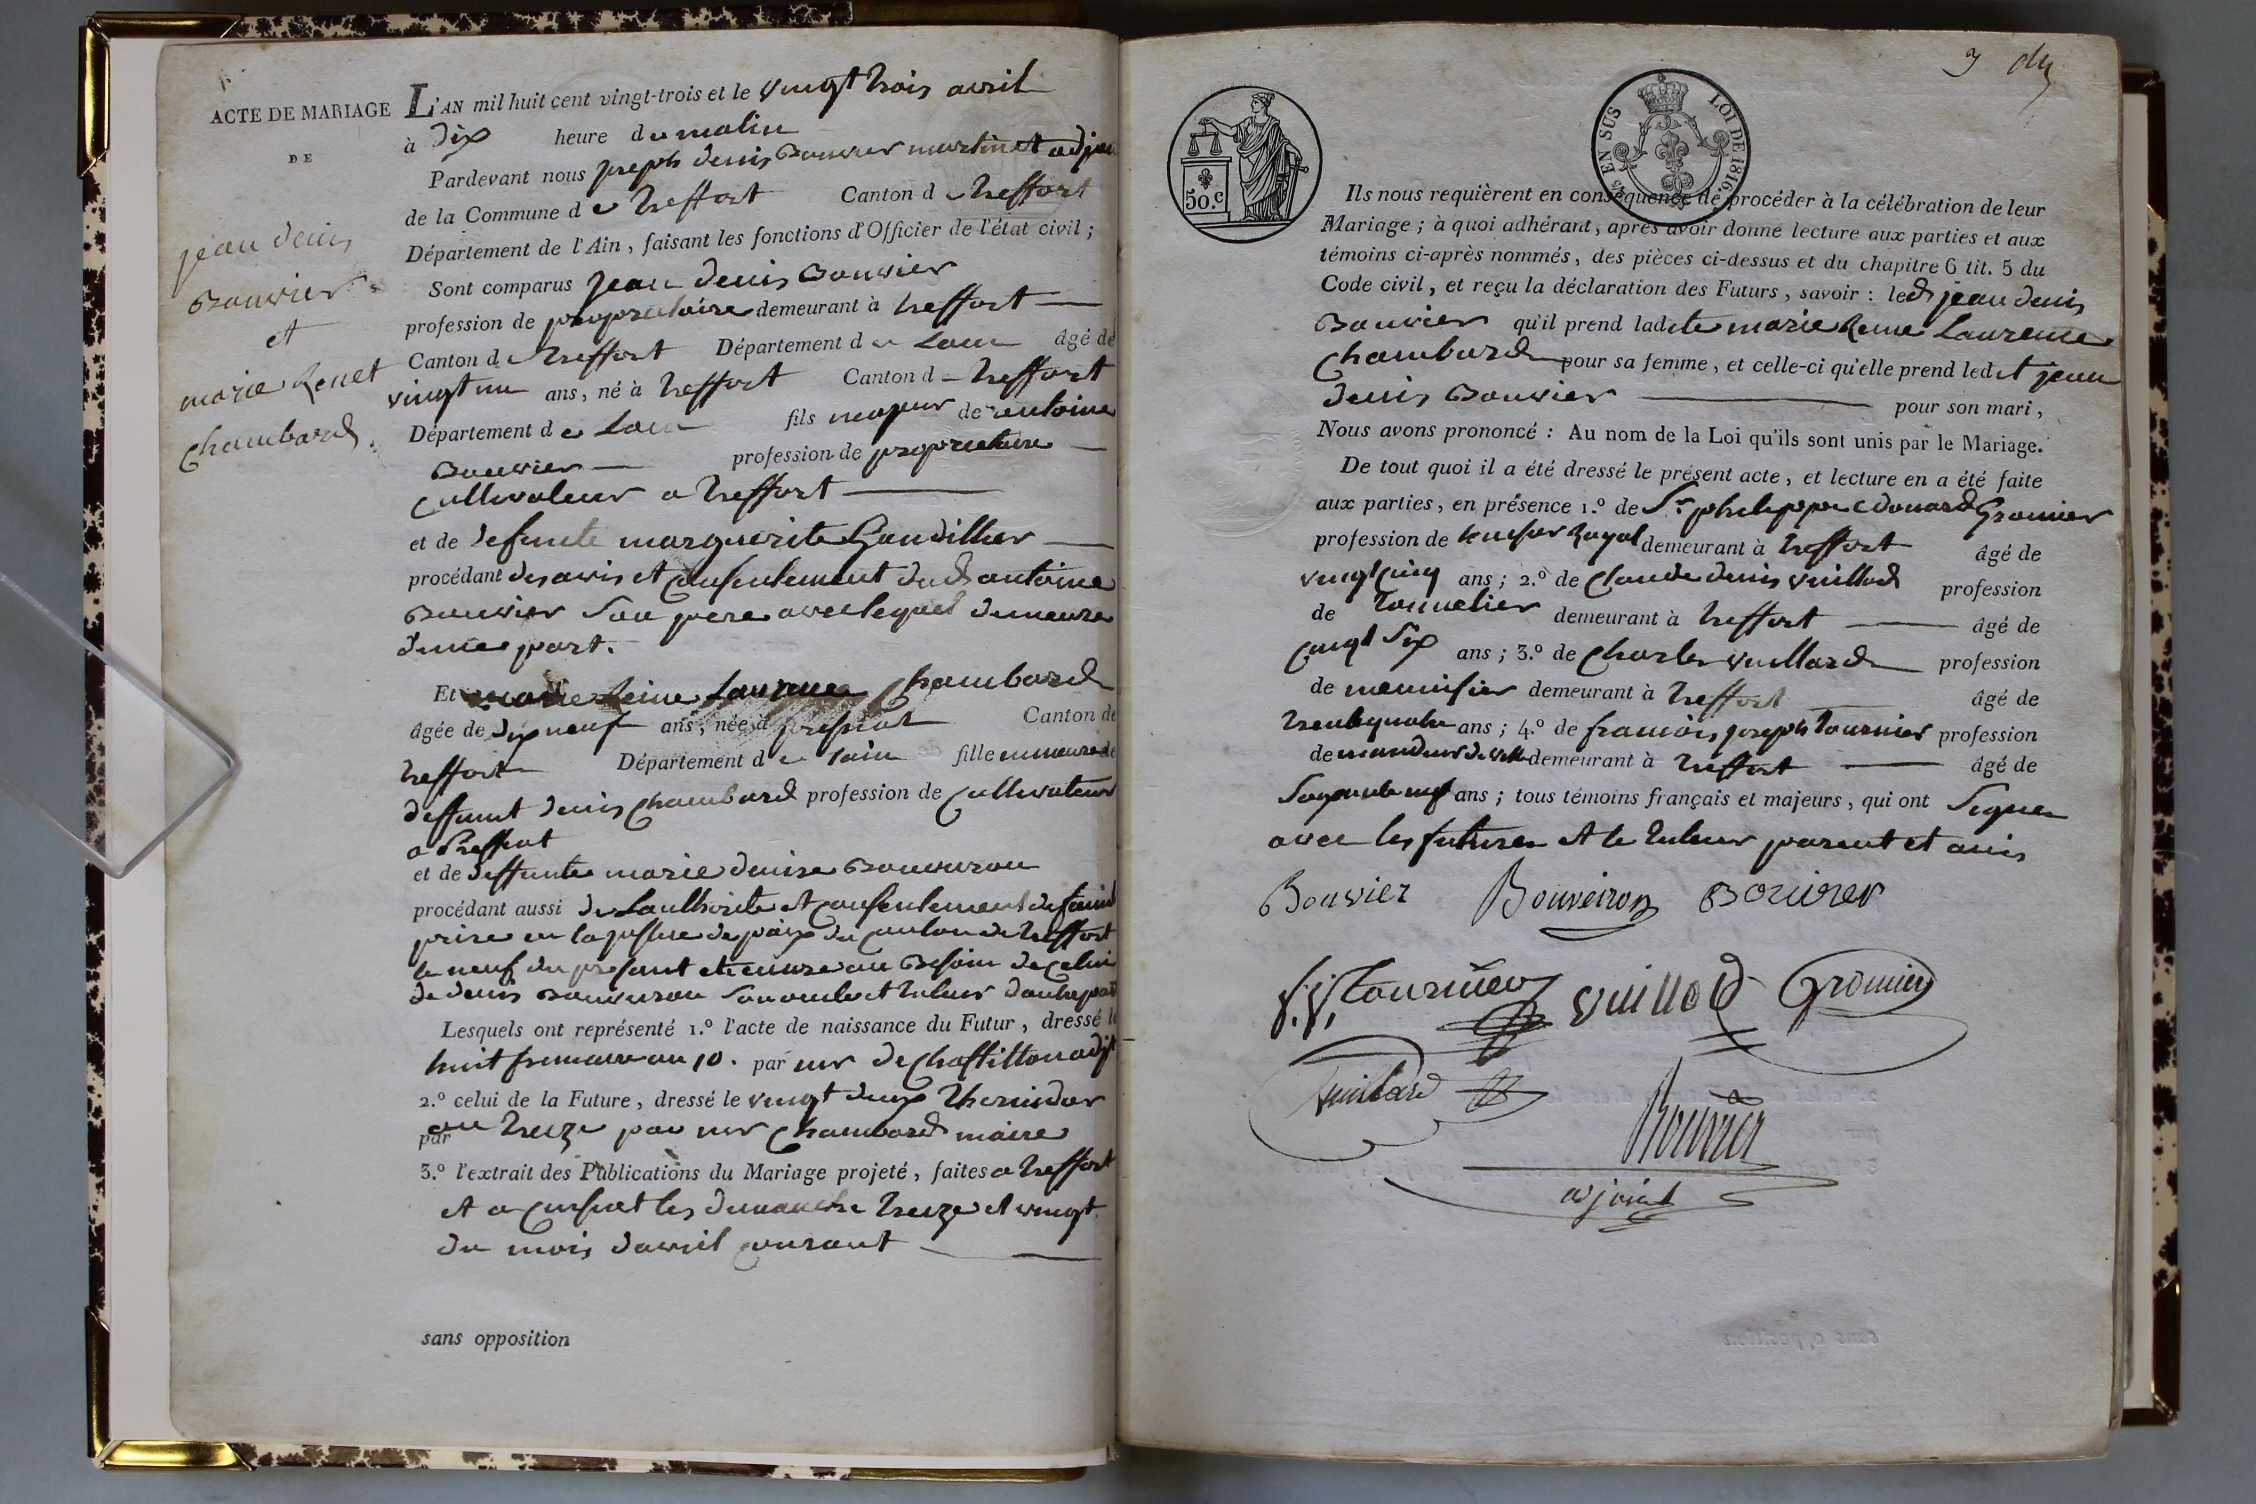 ACTE DE MARIAGE
DE
jean denis
Bouvier
et
marie Renet
Chambard.
L'AN mil huit cent vingt-trois et le vingt trois avril
à Dix heure du matin
Pardevant nous joseph denis Bouvier martinet adjoin
de la Commune de treffort Canton de treffort
Département de l'Ain, faisant les fonctions d'Officier de l'état civil;
Sont comparus Jean denis Bouvier
profession de proprietaire demeurant à treffort
Canton de treffort Département de Lain âgé de
vingt un ans, né à treffort Canton de treffort
Département de Lain fils majeur de antoine
Bouvier profession de proprietaire
Cultivateur a treffort
et de defunte marguerite Gaudillier
procédant des avis et Consentement dud antoine
Bouvier Son pere avec lequel demeure
dune part.
Et marie Reine Laurence Chambard
âgée de dix neuf ans, née à pressiat Canton de
treffort Département de Lain fille mineure de
deffunt denis Chambard profession de Cultivateur
a Pressiat
et de deffunte marie denise Bouveiron
procédant aussi de Lauthorite et Consentement de famil
prise en la justice de paix du Canton de treffort
le neuf du present et encore au Besoin de Celui
de denis Bouveiron Son oncle et tuteur dautre part
Lesquels ont représenté 1.º l'acte de naissance du Futur, dressé le
huit frimaire an 10. par mr de Chattillon adjt
2.º celui de la Future, dressé le vingt deux thermidor
par an treize par mr Chambard maire
3.º l'extrait des Publications du Mariage projeté, faites a treffort
et a Cuisiat les dimanche treize et vingt
du mois davril courant
sans opposition
3
50.c
EN SUS
LOI DE 1816.
Ils nous requièrent en conséquence de procéder à la célébration de leur
Mariage; à quoi adhérant, après avoir donné lecture aux parties et aux
témoins ci-après nommés, des pièces ci-dessus et du chapitre 6 tit. 5 du
Code civil, et reçu la déclaration des Futurs, savoir: led jean denis
Bouvier qu'il prend ladite marie Reine Laurence
Chambard pour sa femme, et celle-ci qu'elle prend ledit jean
denis Bouvier pour son mari,
Nous avons prononcé: Au nom de la Loi qu'ils sont unis par le Mariage.
De tout quoi il a été dressé le présent acte, et lecture en a été faite
aux parties, en présence 1.º de Sr. philippe Edouard Gromier
profession de huissier Royal demeurant à treffort âgé de
vingt Cinq ans; 2.º de Claude denis vuillod profession
de Tonnelier demeurant à treffort âgé de
vingt Six ans; 3.º de Charles vuillard profession
de menuisier demeurant à treffort âgé de
trente quatre ans; 4.º de francois joseph tournier profession
de demeurant à treffort âgé de
Soixante neuf ans; tous témoins français et majeurs, qui ont Signer
avec les futures et le tuteur parent et amis
Bouvier Bouveiron Bouvier
f. j. Tournier vuillod Gromier
Vuillard
Bouvier
adjoint